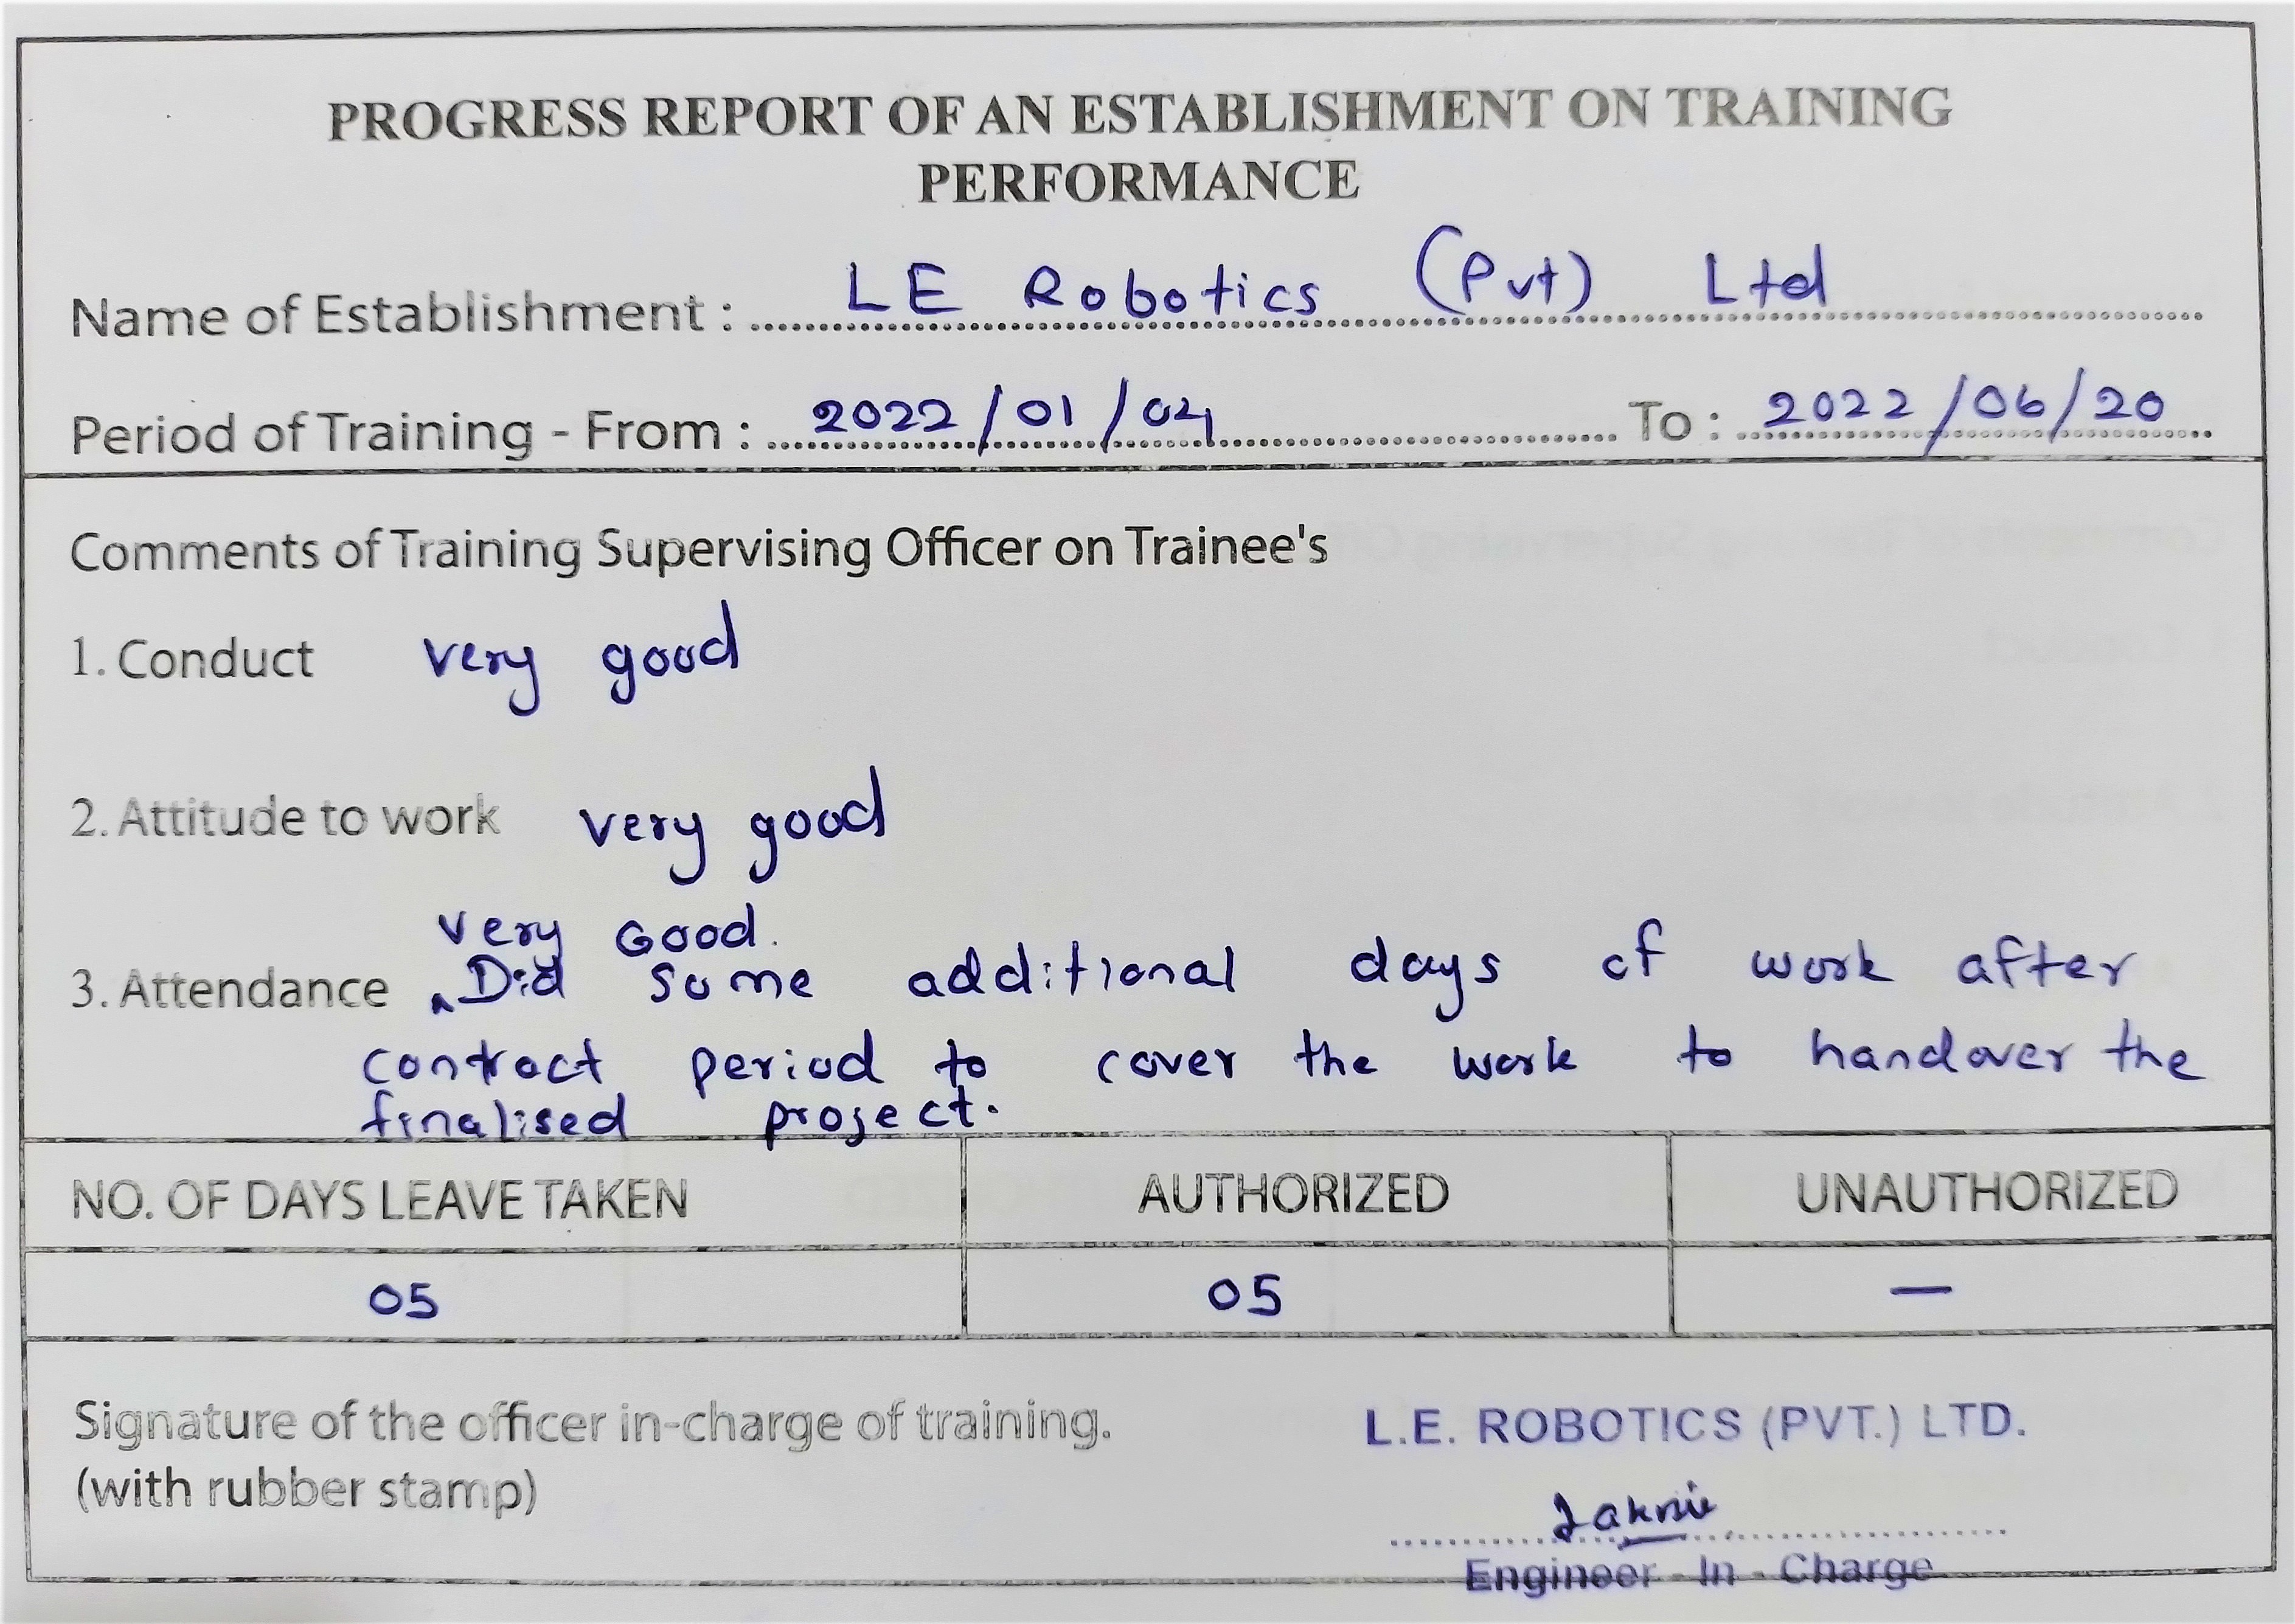 PROGRESS REPORT OF AN ESTABLISHMENT ON TRAINING
PERFORMANCE
Name of Establishment : LE Robotics (Pvt) Ltd
Period of Training - From : 2022/01/04 To : 2022/06/20
Comments of Training Supervising Officer on Trainee's
1. Conduct very good
2. Attitude to work very good
very Good.
3. Attendance Did some additional days of work after
contract period to cover the work to handover the
finalised project.
NO. OF DAYS LEAVE TAKEN AUTHORIZED UNAUTHORIZED
05 05 —
Signature of the officer in-charge of training. L.E. ROBOTICS (PVT.) LTD.
(with rubber stamp)
Engineer - In - Charge